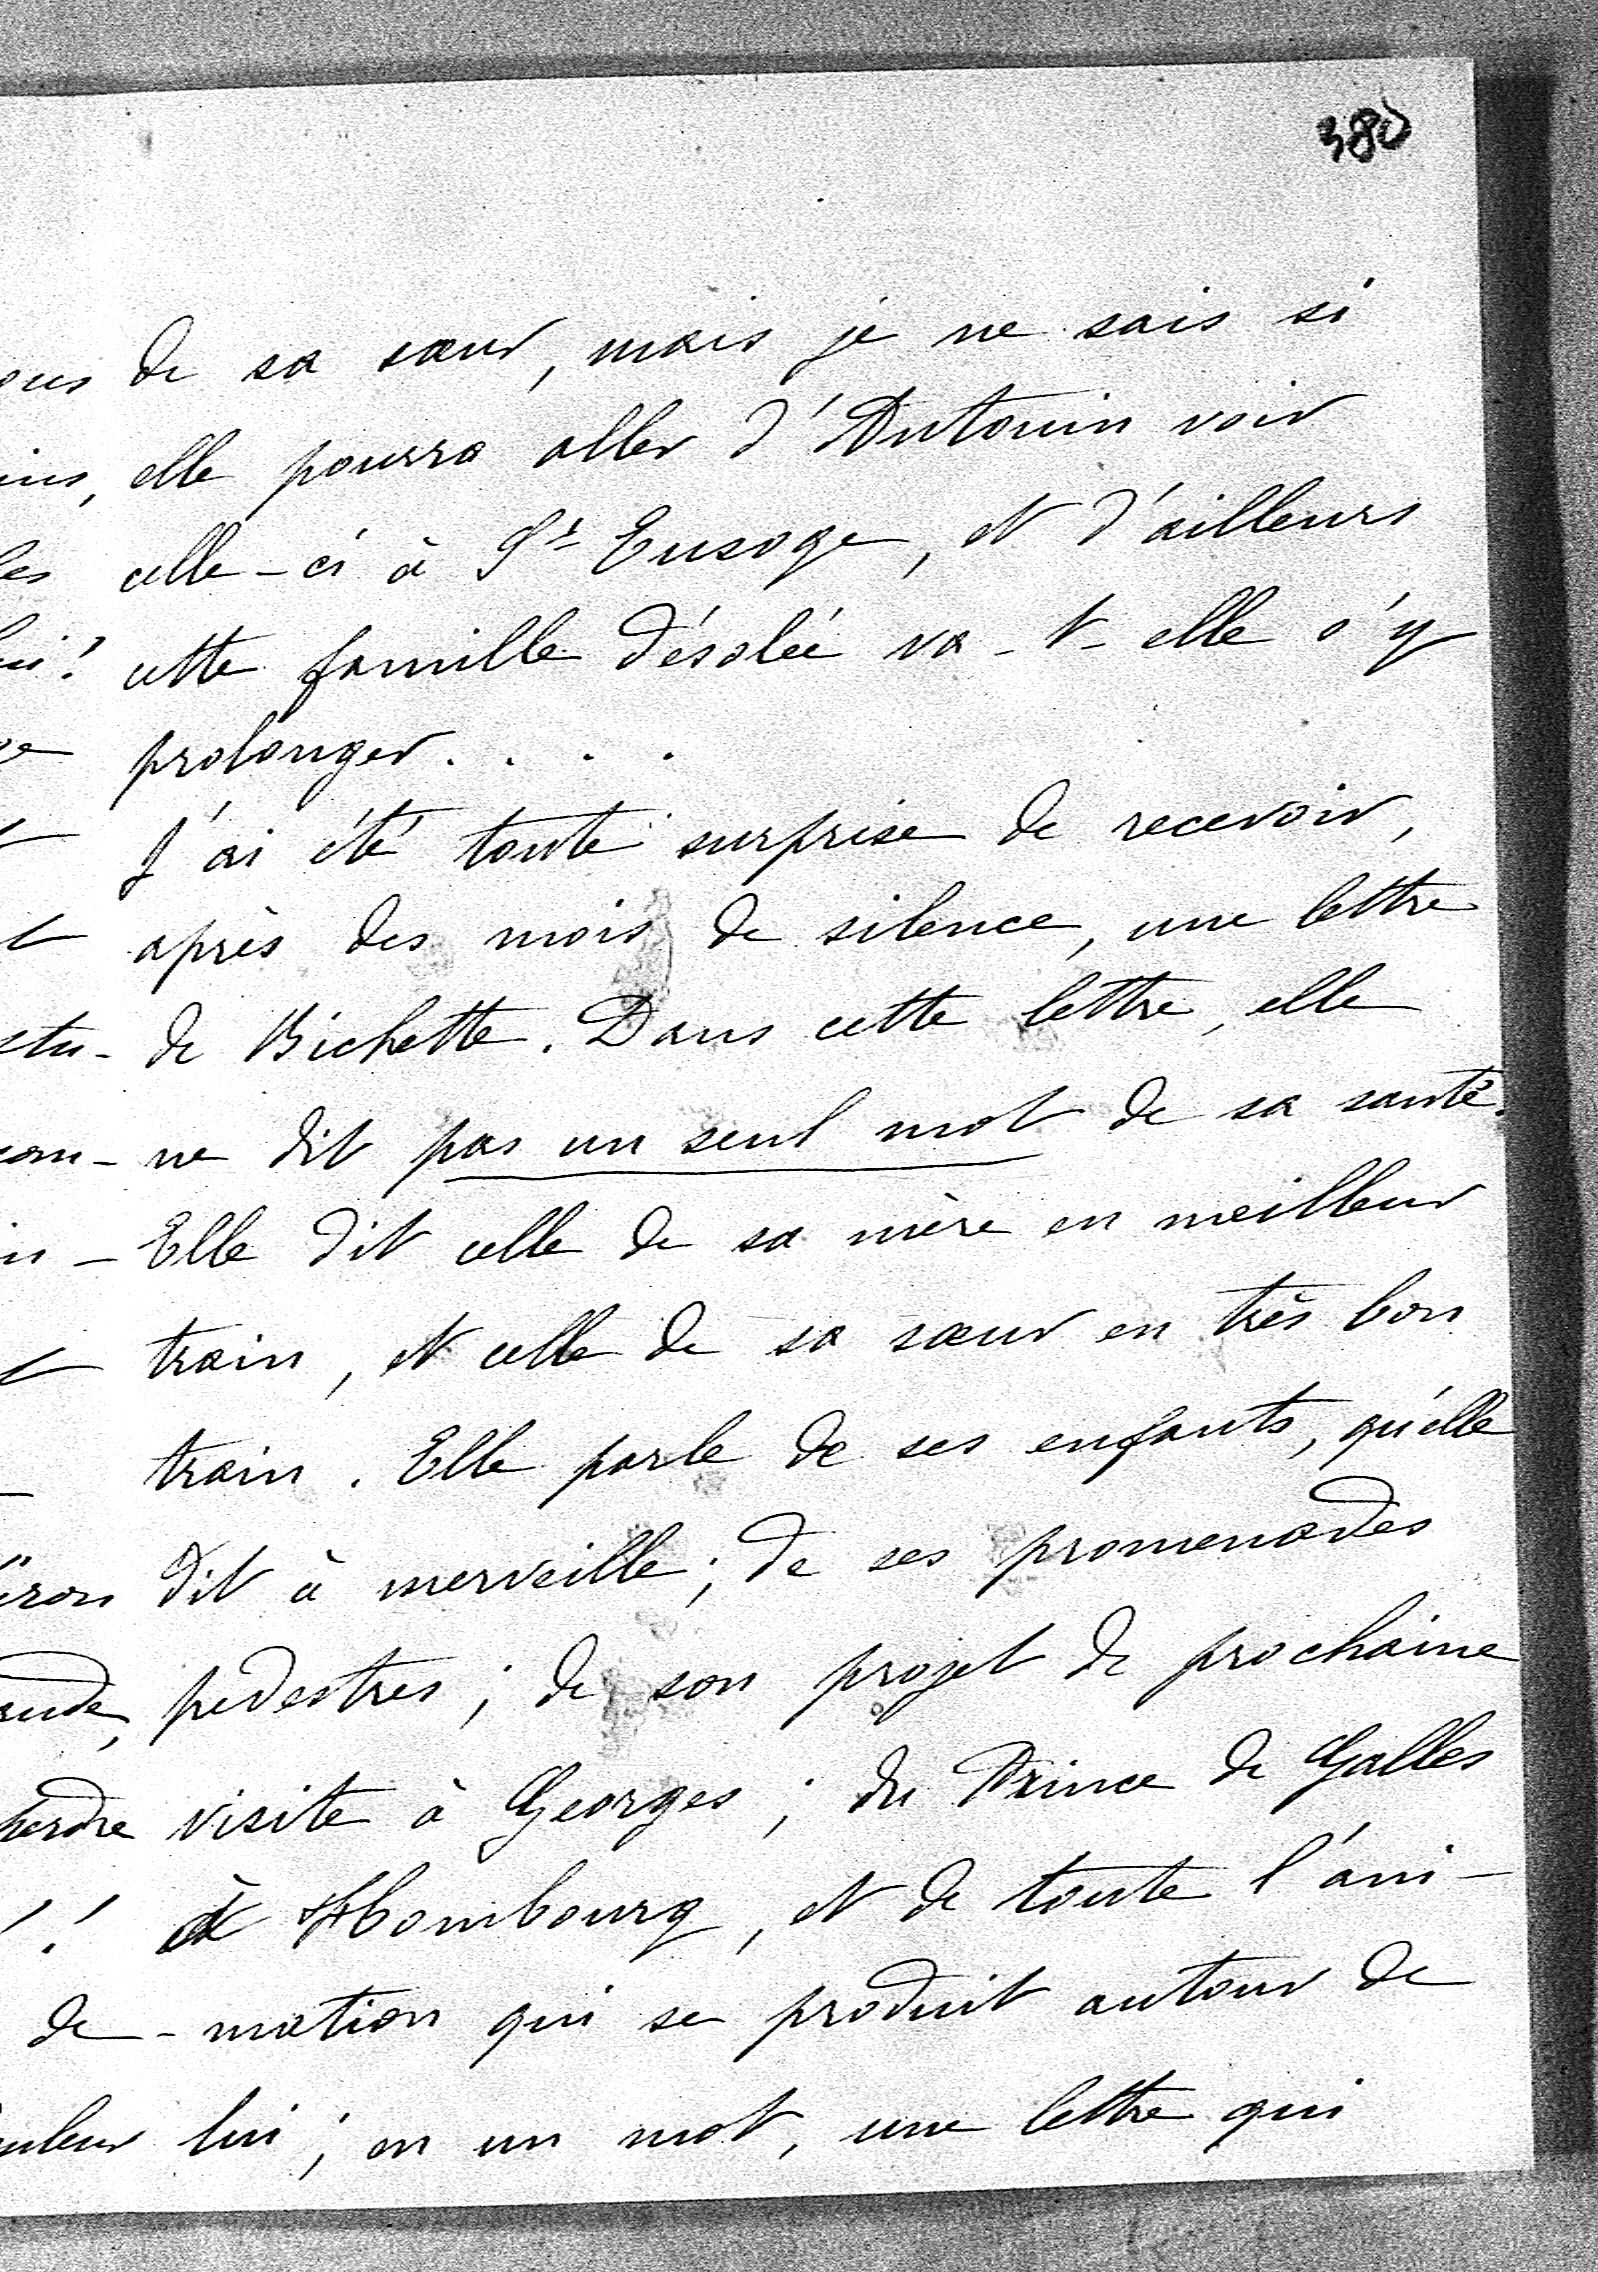 380
de sa sœur, mais je ne sais si
elle pourra aller d'Antouin voir
celle-ci à St Eusoge, et d'ailleurs
cette famille désolée va-t-elle s'y
prolonger....
J'ai été toute surprise de recevoir,
après des mois de silence, une lettre
de Bichette. Dans cette lettre, elle
ne dit pas un seul mot de sa santé.
Elle dit celle de sa mère en meilleur
train, et celle de sa sœur en très bon
train. Elle parle de ses enfants, qu'elle
dit à merveille; de ses promenades
pédestres; de son projet de prochaine
visite à Georges; du Prince de Galles
à Hombourg, et de toute l'ani-
-mation qui se produit autour de
lui; en un mot, une lettre qui